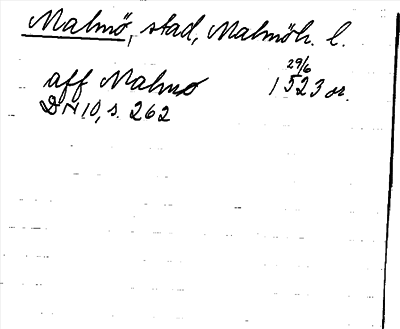 Malmö, stad, Malmöh. l.
29/6
aff Malmo 1523 or.
DN 10, s. 262